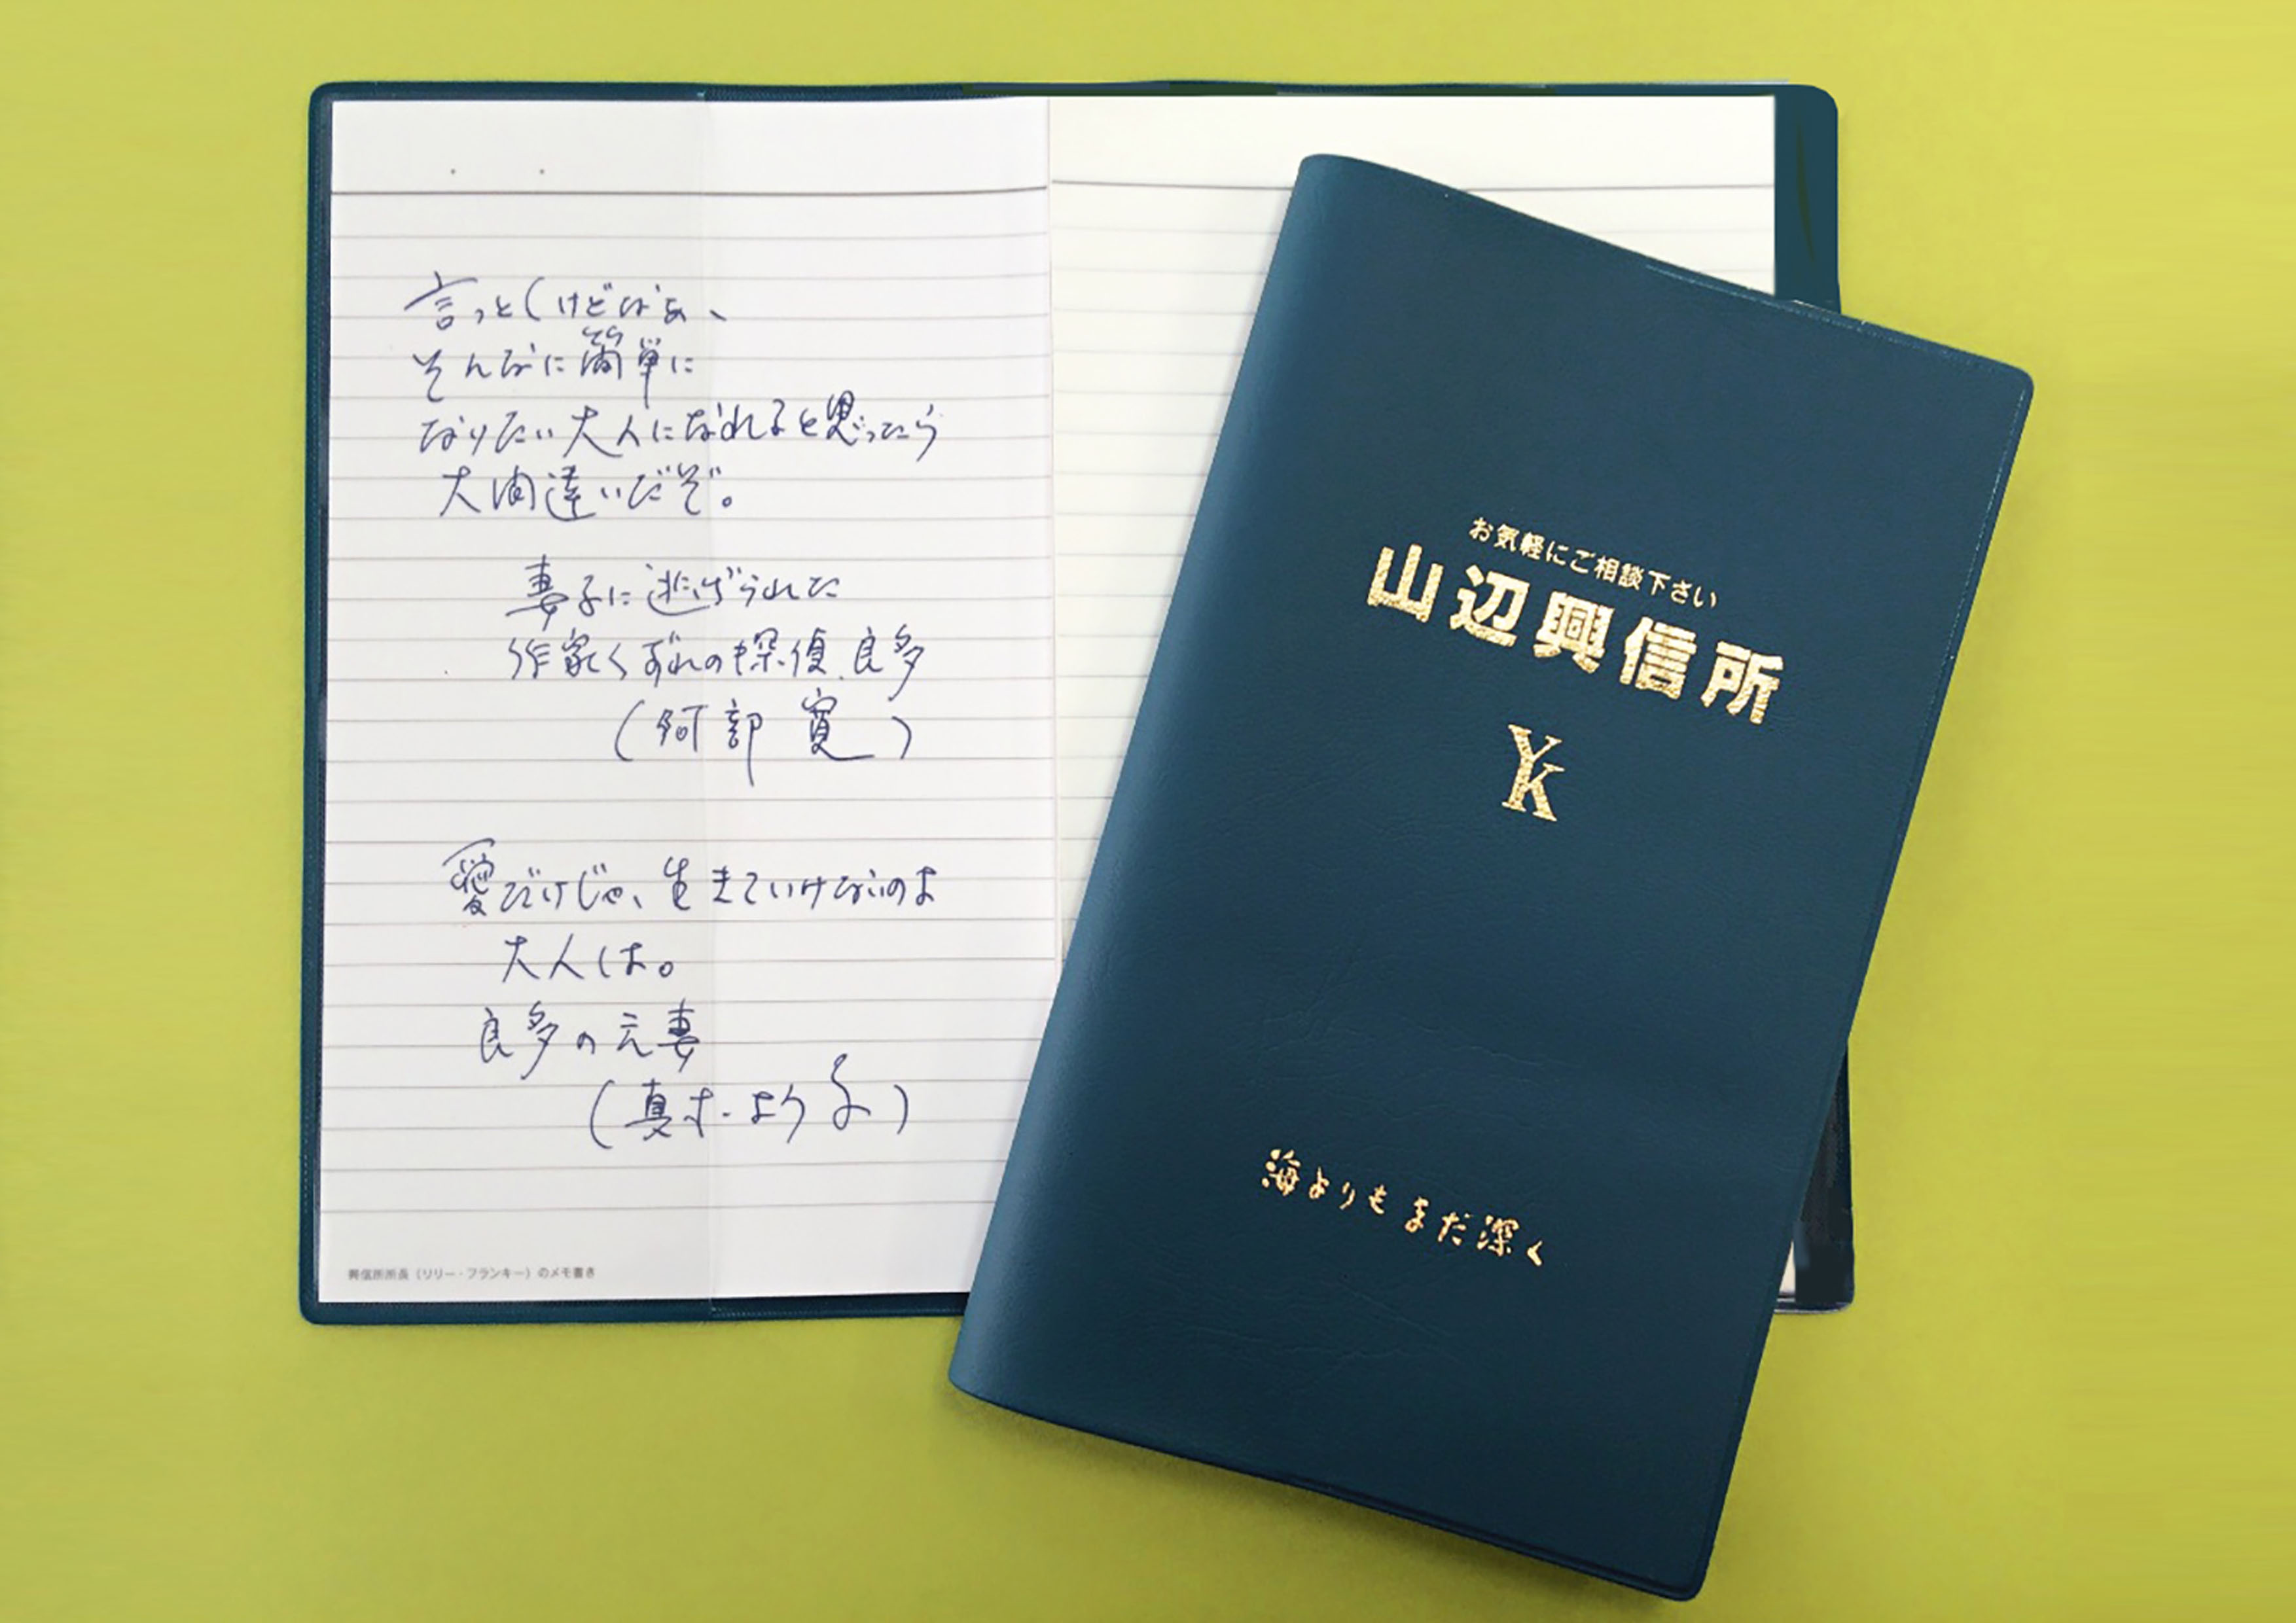 言っとくけどなぁ、
そんなに簡単に
なりたい大人になれると思ったら
大間違いだぞ。
妻子に逃げられた
作家くずれの探偵、良多
(阿部 寛)
愛だけじゃ、生きていけないのよ
大人は。
良多の元妻
(真木よう子)
興信所所長（リリー・フランキー）のメモ書き
お気軽にご相談下さい
山辺興信所
YK
海よりもまだ深く